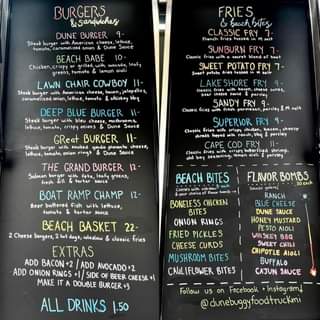 BURGERS
& Sandwiches
DUNE BURGER 9-
Steak burger with American cheese, lettuce,
tomato, caramelized onion & Dune Sauce
BEACH BABE 10-
Chicken, crispy or grilled with avocado, leafy
greens, tomato & lemon aioli
LAWN CHAIR COWBOY 11-
Steak burger with American cheese, bacon, jalapeños,
caramelized onion, lettuce, tomato & whiskey bbq
DEEP BLUE BURGER 11-
Steak burger with bleu cheese, mushrooms,
lettuce, tomato, crispy onions & Dune Sauce
GReat BURGER 11-
Steak burger with smoked gouda pimento cheese,
lettuce, tomato, crispy onions & Dune Sauce
THE GRAND BURGER 12-
Salmon burger with feta, leafy greens,
fresh dill & tartar sauce
BOAT RAMP CHAMP 12-
Beer battered fish with lettuce,
tomato & tartar sauce
BEACH BASKET 22-
2 Cheese burgers, 2 hot dogs, windmill & classic fries
EXTRAS
ADD BACON +2 / ADD AVOCADO +2
ADD ONION RINGS +1 / SIDE OF BEER CHEESE +1
MAKE IT A DOUBLE BURGER +3
ALL DRINKS 1.50
FRIES
& beach bites
CLASSIC FRY 7-
French fries tossed in salt
SUNBURN FRY 7-
Classic fries with a secret blend of heat
SWEET POTATO FRY 7-
Sweet potato fries tossed in salt
LAKESHORE FRY 7-
Classic fries with
SANDY FRY 9-
Classic fries with parmesan, parsley &
SUPERIOR FRY 9-
Classic fries with crispy chicken, bacon, cheesy
ranch, bbq & parsley
CAPE COD FRY 11-
Classic fries with shrimp,
old bay seasoning, lemon aioli & parsley
BEACH BITES
BONELESS CHICKEN
BITES
ONION RINGS
FRIED PICKLES
CHEESE CURDS
MUSHROOM BITES
CAULIFLOWER BITES
FLAVOR BOMBS
.50 each
RANCH
BLUE CHEESE
DUNE SAUCE
HONEY MUSTARD
PESTO AIOLI
WHISKEY BBQ
SWEET CHILI
CHIPOTLE AIOLI
BUFFALO
CAJUN SAUCE
Follow us on Facebook + Instagram!
@dunebuggyfoodtruckmi